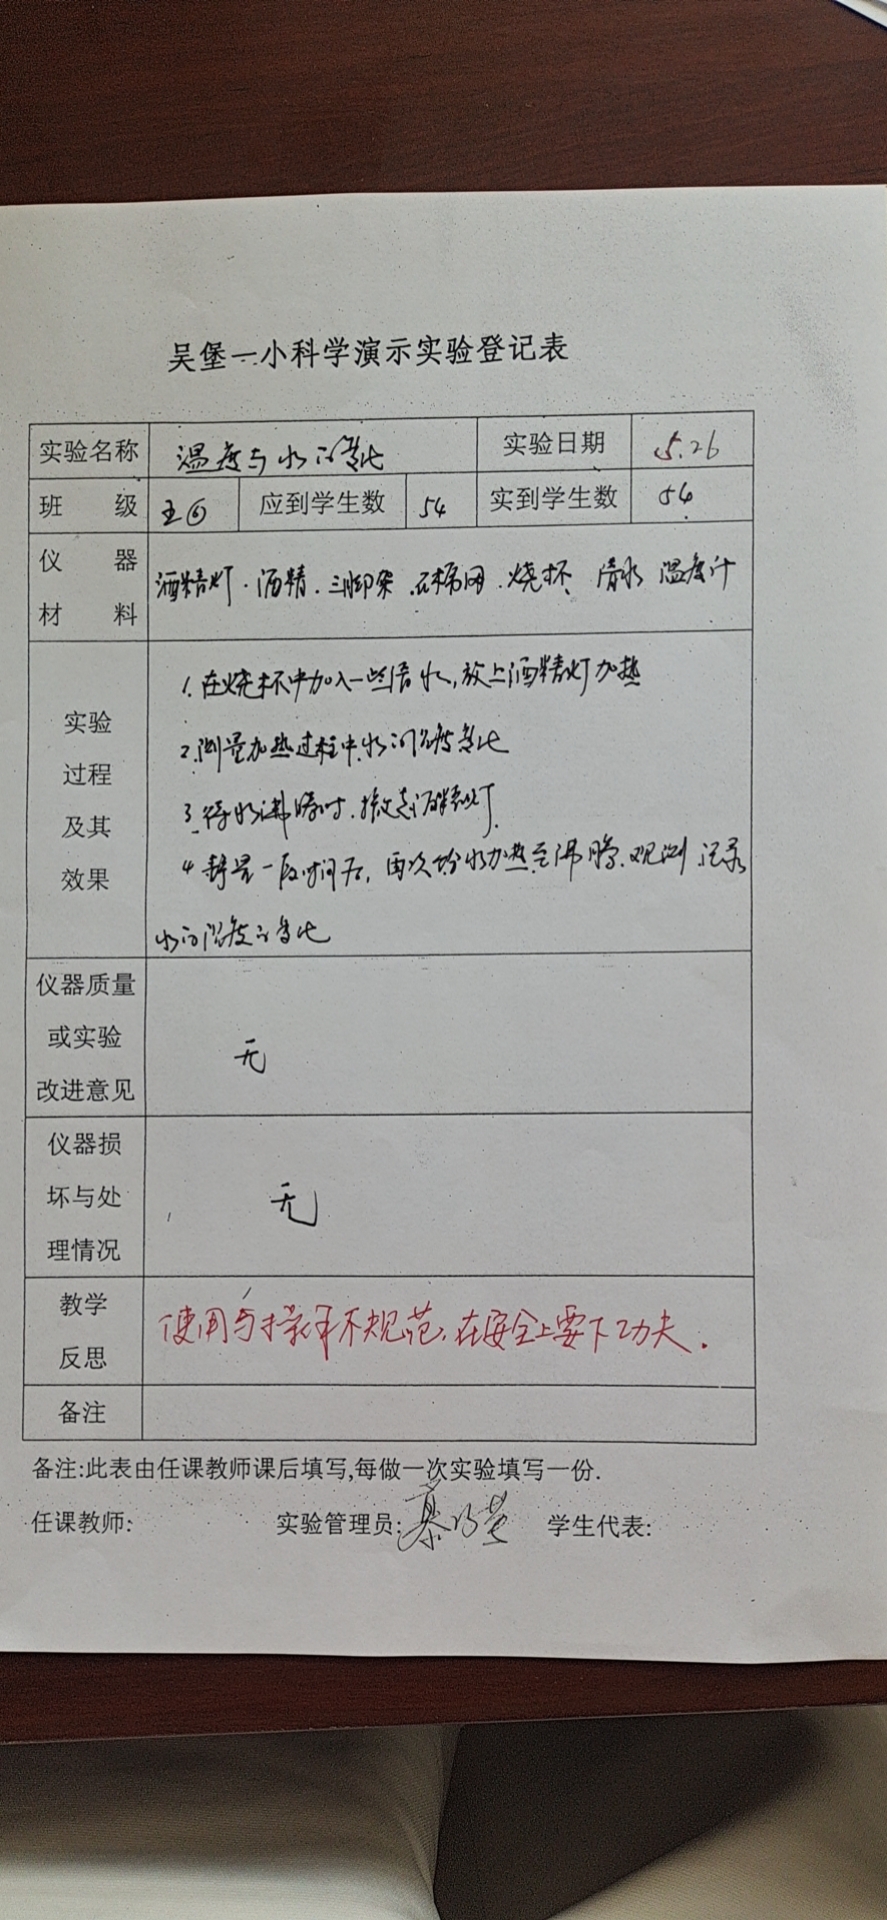 吴堡一小科学演示实验登记表
实验名称 温度与水的变化 实验日期 5.26
班 级 五⑥ 应到学生数 54 实到学生数 54
仪 器
材 料
酒精灯.酒精.三脚架.石棉网.烧杯 清水 温度计
实验
过程
及其
效果
1.在烧杯中加入一些清水,放上酒精灯加热
2.测量加热过程中水的温度变化
3.待水沸腾时.撤走酒精灯.
4 静置一段时间后,再次给水加热至沸腾.观测 记录
水的温度的变化
仪器质量
或实验
改进意见
无
仪器损
坏与处
理情况
无
教学
反思
使用与操作不规范,在安全上要下功夫.
备注
备注:此表由任课教师课后填写,每做一次实验填写一份.
任课教师: 实验管理员: 学生代表: